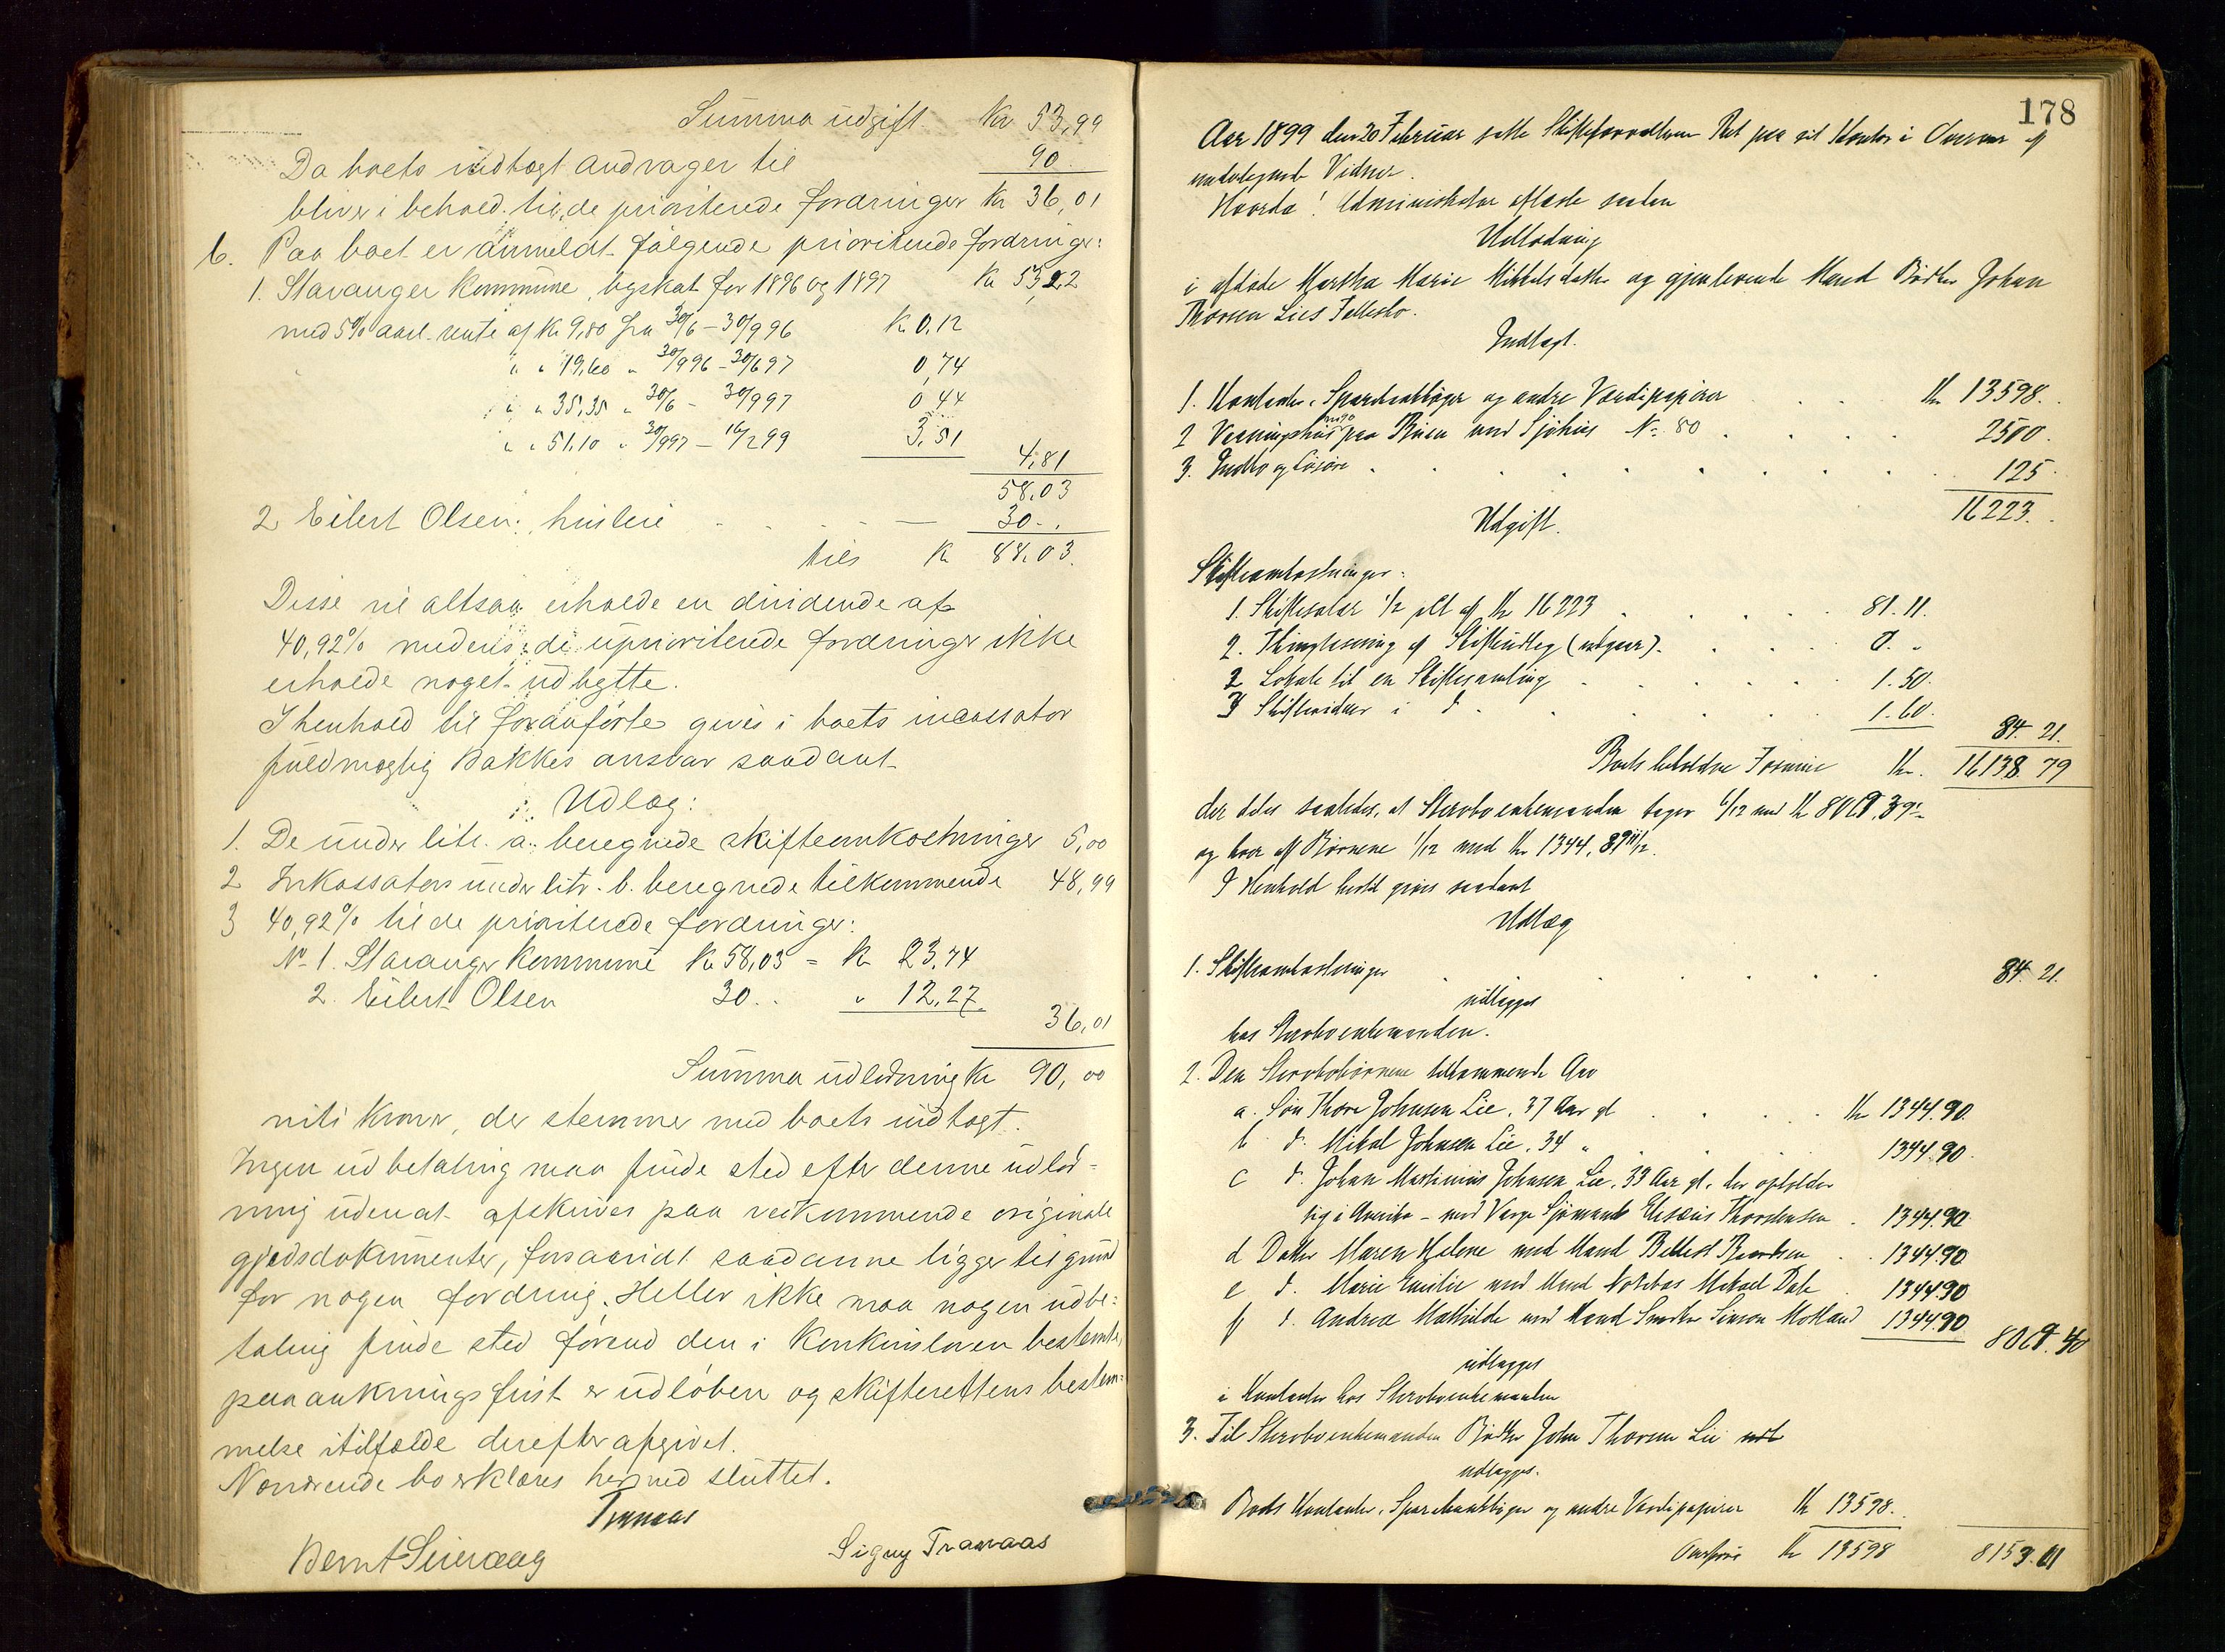 Summa udgift Kr 53,99
Da boets indtægt andrager til 90
bliver i behold til de prioriterede fordringer Kr 36,01
b. Paa boet er anmeldt følgende prioriterede fordringer:
1. Stavanger Kommune, byskat for 1896 og 1897 Kr 53,22
med 5% aarl. rente af Kr 9,80 fra 30/6 – 30/9 96 Kr 0,12
" " 19,60 " 30/9 96 – 30/6 97 0,74
" " 35,35 " 30/6 – 30/9 97 0,44
" " 51,10 " 30/9 97 – 16/2 99 3,51
4,81
58,03
2 Eilert Olsen: husleie 30 . .
tils Kr 88,03.
Disse vil altsaa erholde en dividende af
40,92% medens de uprioriterede fordringer ikke
erholde noget udbytte.
I henhold til foranførte gives i boets incassator
fuldmægtig Bakkes ansvar saadant
Udlæg:
1. De under litr. a. beregnede skifteomkostninger 5,00
2 Inkassators under litr. b. beregnede tilkommende 48,99
3 40,92% til de prioriterede fordringer:
No 1. Stavanger Kommune Kr 58,03 = Kr 23,74
2. Eilert Olsen 30 . . " 12,27
36,01
Summa udlodning Kr 90,00
niti Kroner, der stemmer med boets indtægt.
Ingen udbetaling maa finde sted efter denne udlod=
ning uden at afskrives paa vedkommende originale
gjældsdokumenter, forsaavidt saadanne ligger til grund
for nogen fordring. Heller ikke maa nogen udbe=
taling finde sted førend den i Konkursloven bestemte
paaankningsfrist er udløben og skifterettens bestem=
melse i tilfælde derefter afgivet.
Nærværende bo erklæres hermed sluttet.
Tranaas
Bernt Sivevaag Signy Tranaas
178
Aar 1899 den 20 Februar satte Skifteforvalteren Ret paa sit Kontor i og
undertegnede Vidner.
Hvorda! Administrator aflagde saadan
Udlodning
i afdøde Martha Marie Mikkelsdatter og gjenlevende Mand Bødker Johan
Thorsen Lies Fællesbo.
Indtægt.
1. Kontanter, Sparebankbøger og andre Værdipapirer Kr 13598.
2 Vaaningshus paa med Sjøhus No 80 2500.
3. Indbo og Løsøre 125.
16223.
Udgift.
Skifteomkostninger:
1. Skiftesalær 1/2 pCt af Kr 16223 81.11.
2. Thinglæsning af Skifteudlæg (udgaar). 0. "
2 Lokale til en Skiftesamling 1.50.
3 Skiftevidner i do 1.60.
84.21.
Boets beholdne Formue Kr. 16138.79
der deles saaledes, at Stervboenkemanden tager 6/12 med Kr 8069.39 1/2
og hver af Børnene 1/12 med Kr 1344,89 11/12.
I Henhold hertil gives saadant
Udlæg
1. Skifteomkostninger 84.21.
udlægges
hos Stervboenkemanden.
2. Den Stervbobørnene tilkommende Arv
a. Søn Thore Johnsen Lie, 37 Aar gl Kr 1344.90.
b. do. Mikal Johnsen Lie, 34 " 1344.90.
c do. Johan Martinius Johnsen Lie, 33 Aar gl. der opholder
sig i Amerika – med Verge Sjømand Thorstensen 1344.90.
d Datter Maren Helene med Mand 1344.90
e do. Marie Emilie med Mand Mikael 1344.90
f do. Andrea Mathilde med Mand Simon 1344.90
8069.40
udlægges
i Kontanter hos Stervboenkemanden
3. Til Stervboenkemanden Bødker John Thorsen Lie
udlægges.
Boets Kontanter, Sparebankbøger og andre Værdipapirer Kr 13598.
Overføres Kr 13598 8153.61